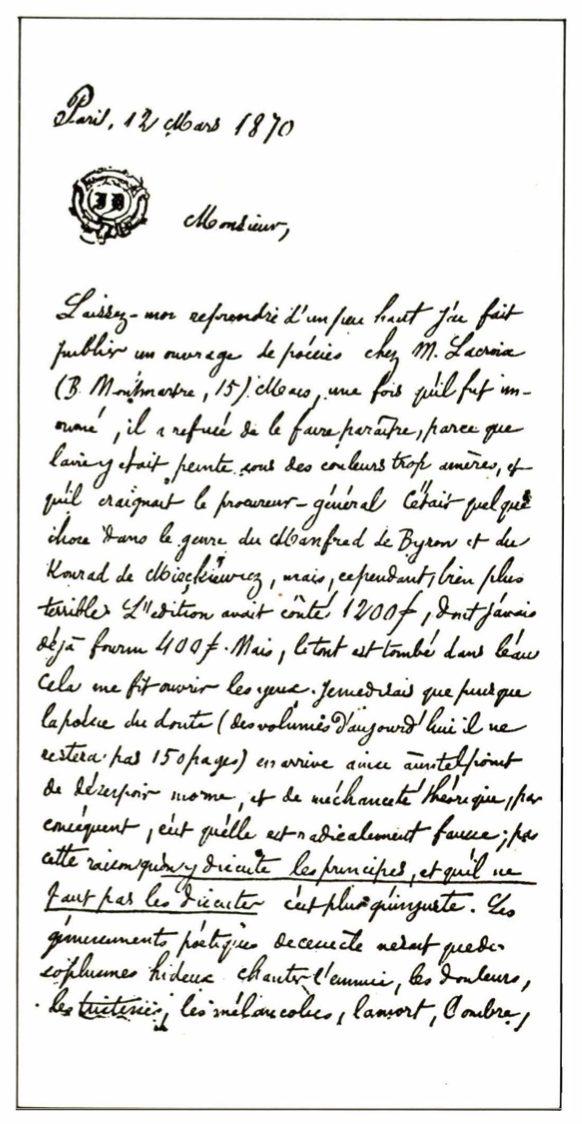 Paris, 12 Mars 1870
JD
Monsieur,
Laissez-moi reprendre d'un peu haut J'ai fait
publier un ouvrage de poésies chez M. Lacroix
(B. Montmartre, 15). Mais, une fois qu'il fut im-
primé, il a refusé de le faire paraître, parce que
la vie y était peinte sous des couleurs trop amères, et
qu'il craignait le procureur-général C'était quelque
chose dans le genre du Manfred de Byron et du
Konrad de Mickiewicz, mais, cependant, bien plus
terrible. L'édition avait coûté 1200f, dont j'avais
déjà fourni 400f. Mais, le tout est tombé dans l'eau
Cela me fit ouvrir les yeux. Je me disais que puisque
la poésie du doute (des volumes d'aujourd'hui il ne
restera pas 150 pages) en arrive ainsi à un tel point
de désespoir morne, et de méchanceté théorique, par
conséquent, c'est qu'elle est radicalement fausse; par
cette raison qu'on y discute les principes, et qu'il ne
faut pas les discuter c'est plus qu'injuste. Les
gémissements poétiques de ce siècle ne sont que des
sophismes hideux chanter l'ennui, les douleurs,
les tristesses, les mélancolies, la mort, l'ombre,